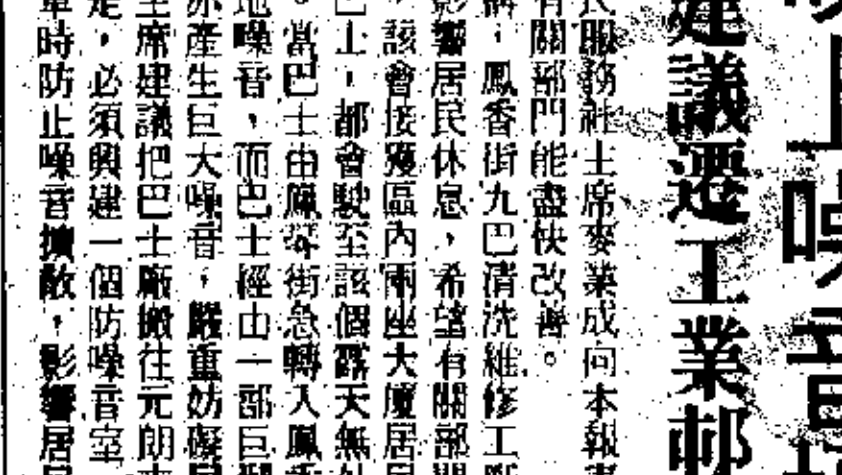 上噪音
建議遷工業邨
民服務社主席麥業成向本報
有關部門能盡快改善。
鳳香街九巴清洗維修工
影響居民休息,希望有關部
該會接獲區內兩座大廈居
巴士,都會駛至該個露天無
當巴士由鳳琴街急轉入鳳
地噪音,而巴士經由一部巨
亦產生巨大噪音,嚴重妨礙
主席建議把巴士廠搬往元朗
是,必須興建一個防噪音室
車時防止噪音擴散,影響居